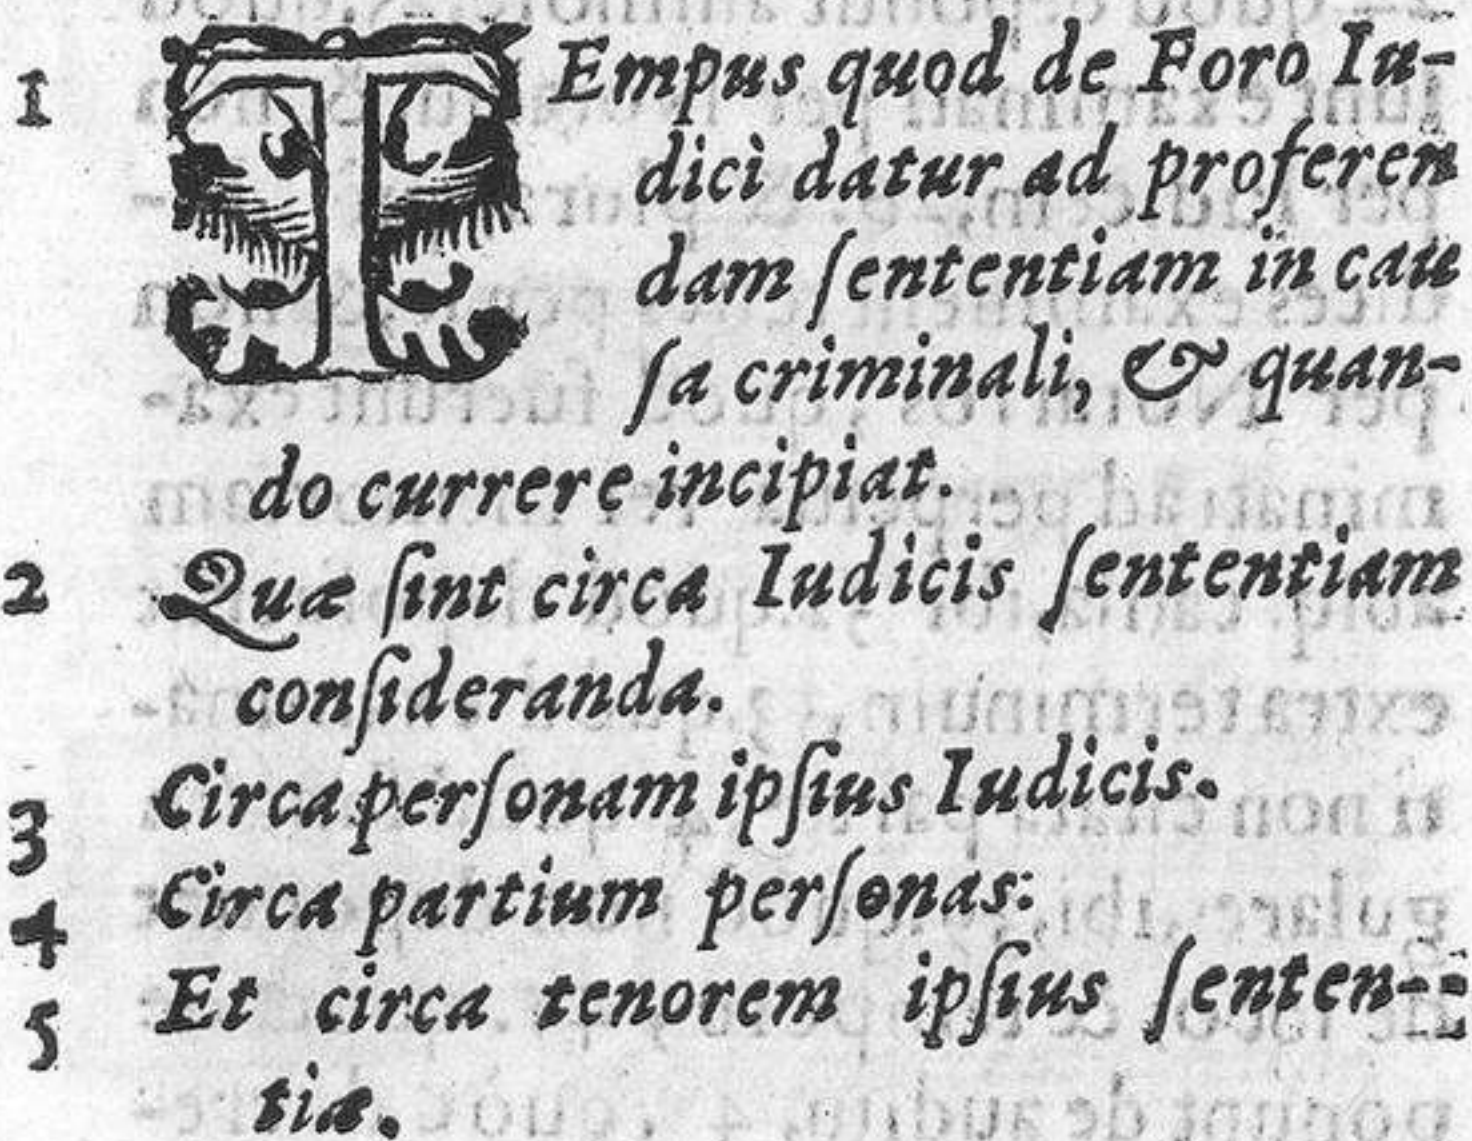 1 TEmpus quod de Foro Iu-
dicì datur ad proferen
dam ſententiam in cau
ſa criminali, & quan-
do currere incipiat.
2 Quæ ſint circa Iudicis ſententiam
conſideranda.
3 Circa perſonam ipſius Iudicis.
4 Circa partium perſonas:
5 Et circa tenorem ipſius ſenten-
tiæ.